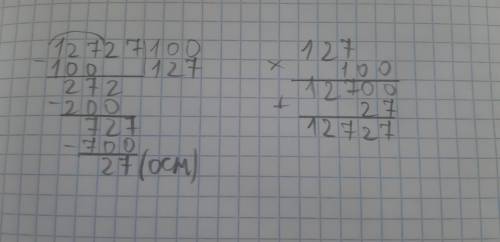 12727 100
- 100 127
272
- 200
727
- 700
27 (осм)
127
× 100
12700
+ 27
12727